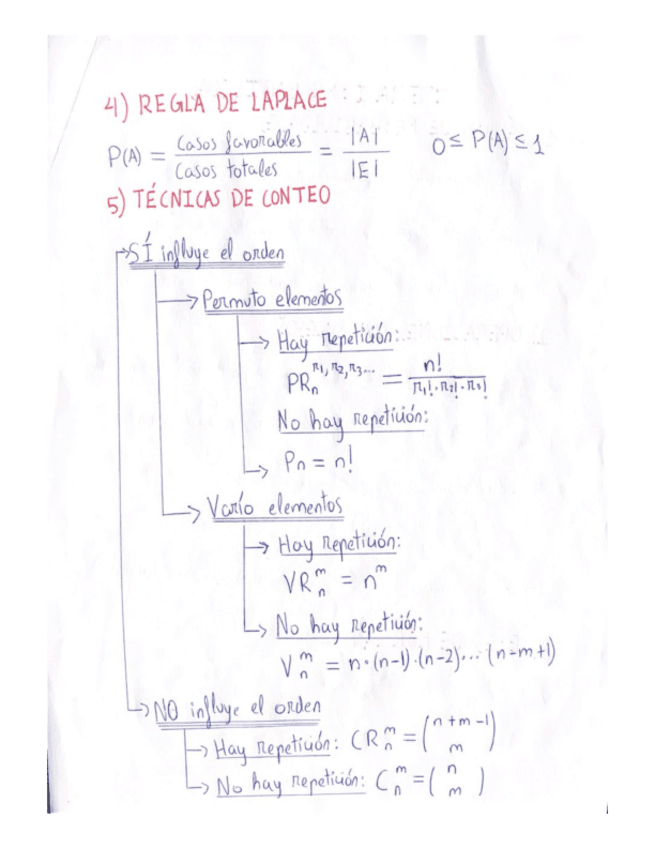 4) REGLA DE LAPLACE
P(A) = Casos favorables / Casos totales = |A| / |E|   0 ≤ P(A) ≤ 1
5) TÉCNICAS DE CONTEO
→ SÍ influye el orden
→ Permuto elementos
→ Hay repetición:
PR_n^{n₁,n₂,n₃...} = n! / n₁!·n₂!·n₃!
No hay repetición:
→ Pn = n!
→ Varío elementos
→ Hay repetición:
VR_n^m = n^m
→ No hay repetición:
V_n^m = n·(n-1)·(n-2)...(n-m+1)
→ NO influye el orden
→ Hay repetición: CR_n^m = (n+m-1 / m)
→ No hay repetición: C_n^m = (n / m)